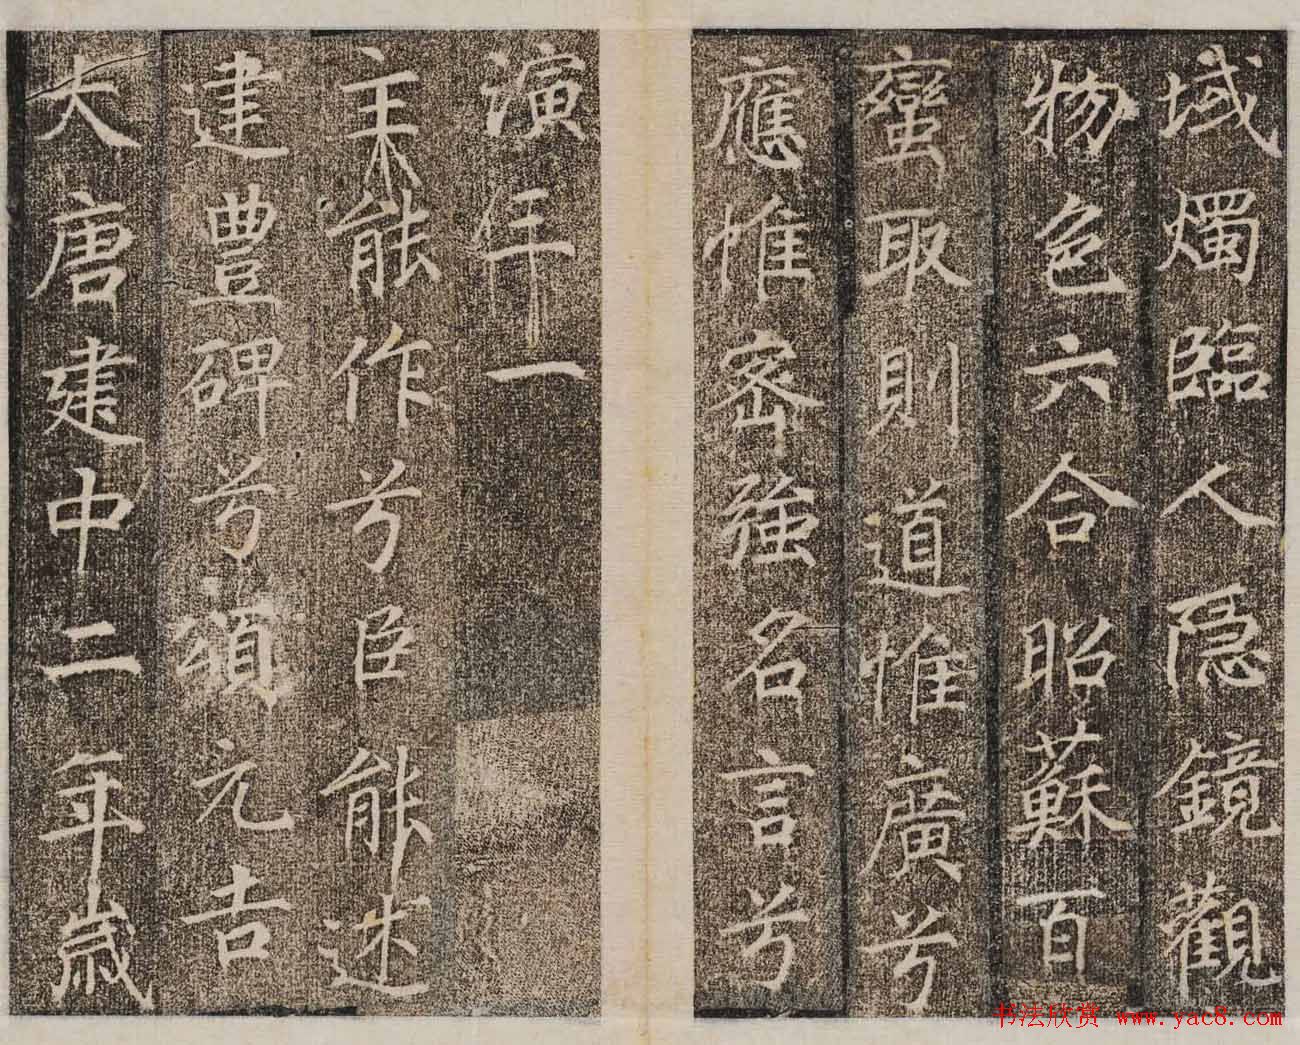 域燭臨人隱鏡觀
物色六合昭蘇百
蠻取則道惟廣兮
應惟密強名言兮
演年一
主能作兮臣能述
建豐碑兮頌元吉
大唐建中二年歲
书法欣赏 www.yac8.com